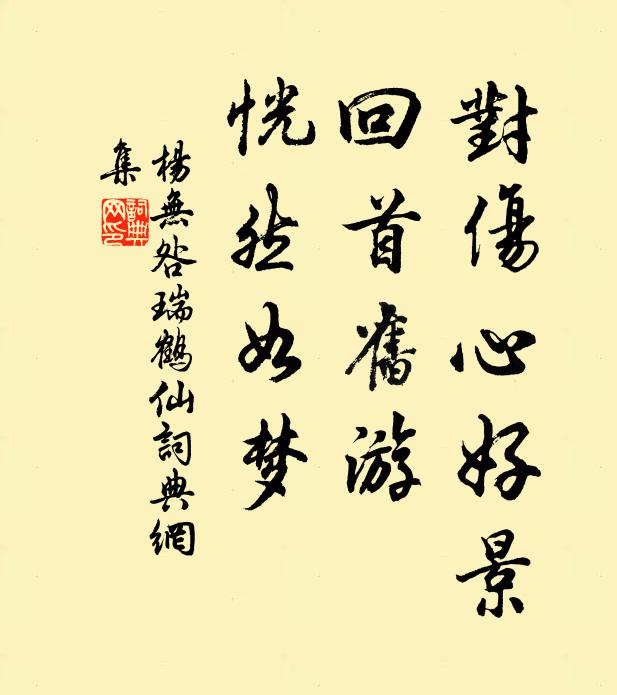 對傷心好景
回首舊游
恍然如梦
楊無咎瑞鶴仙詞典網
集
詞典网印